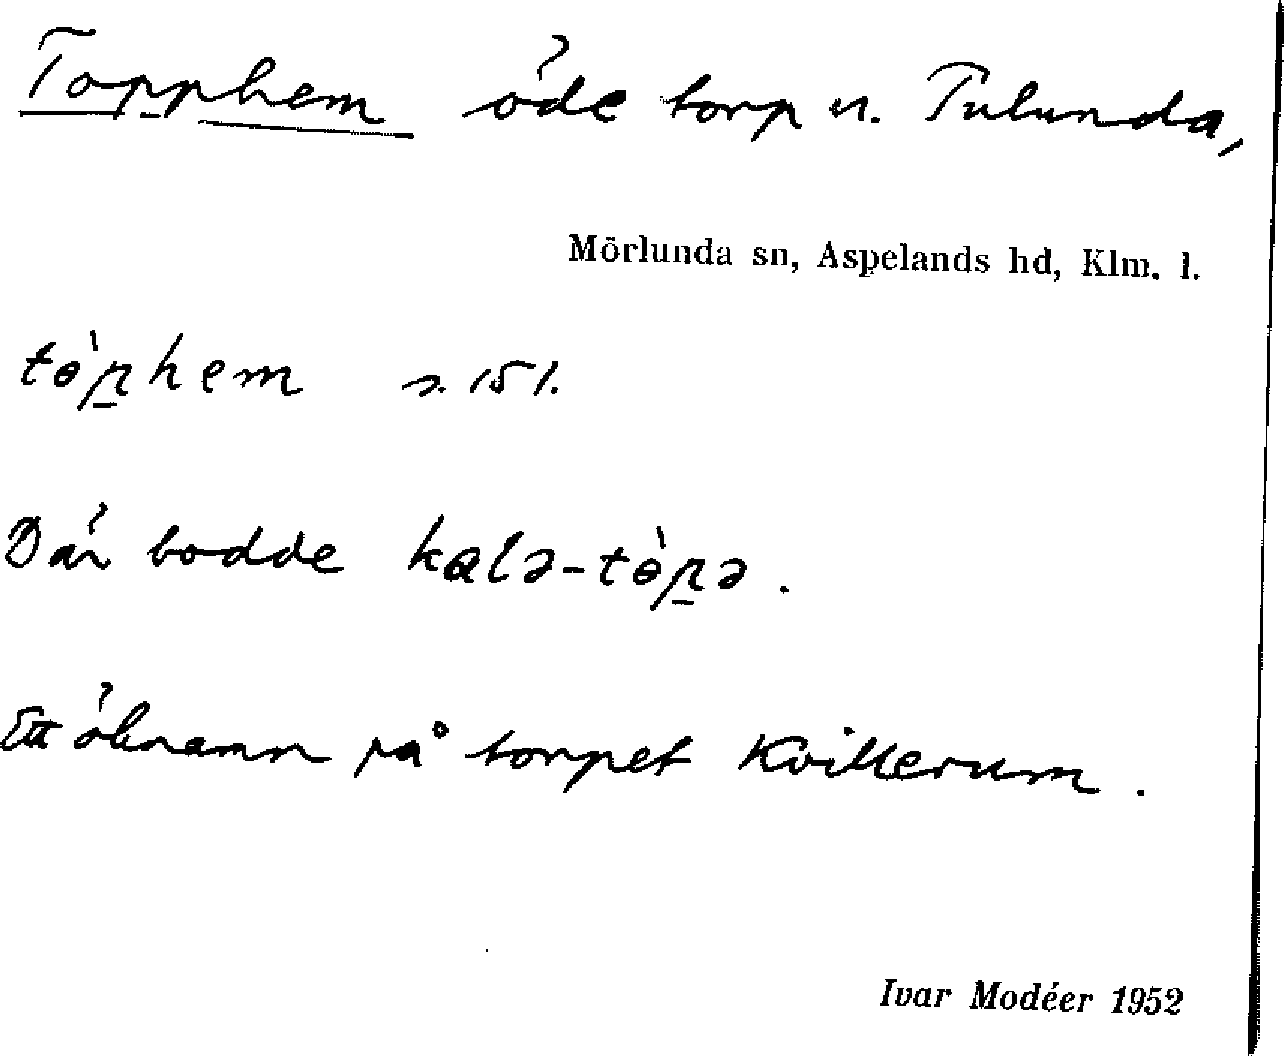 Topphem öde torp u. Tulunda,
Mörlunda sn, Aspelands hd, Klm. l.
tɵ̀p̲hem s. 151.
Där bodde kalə-tɵ̀p̲ə.
Ett öknamn på torpet Kvillerum.
Ivar Modéer 1952